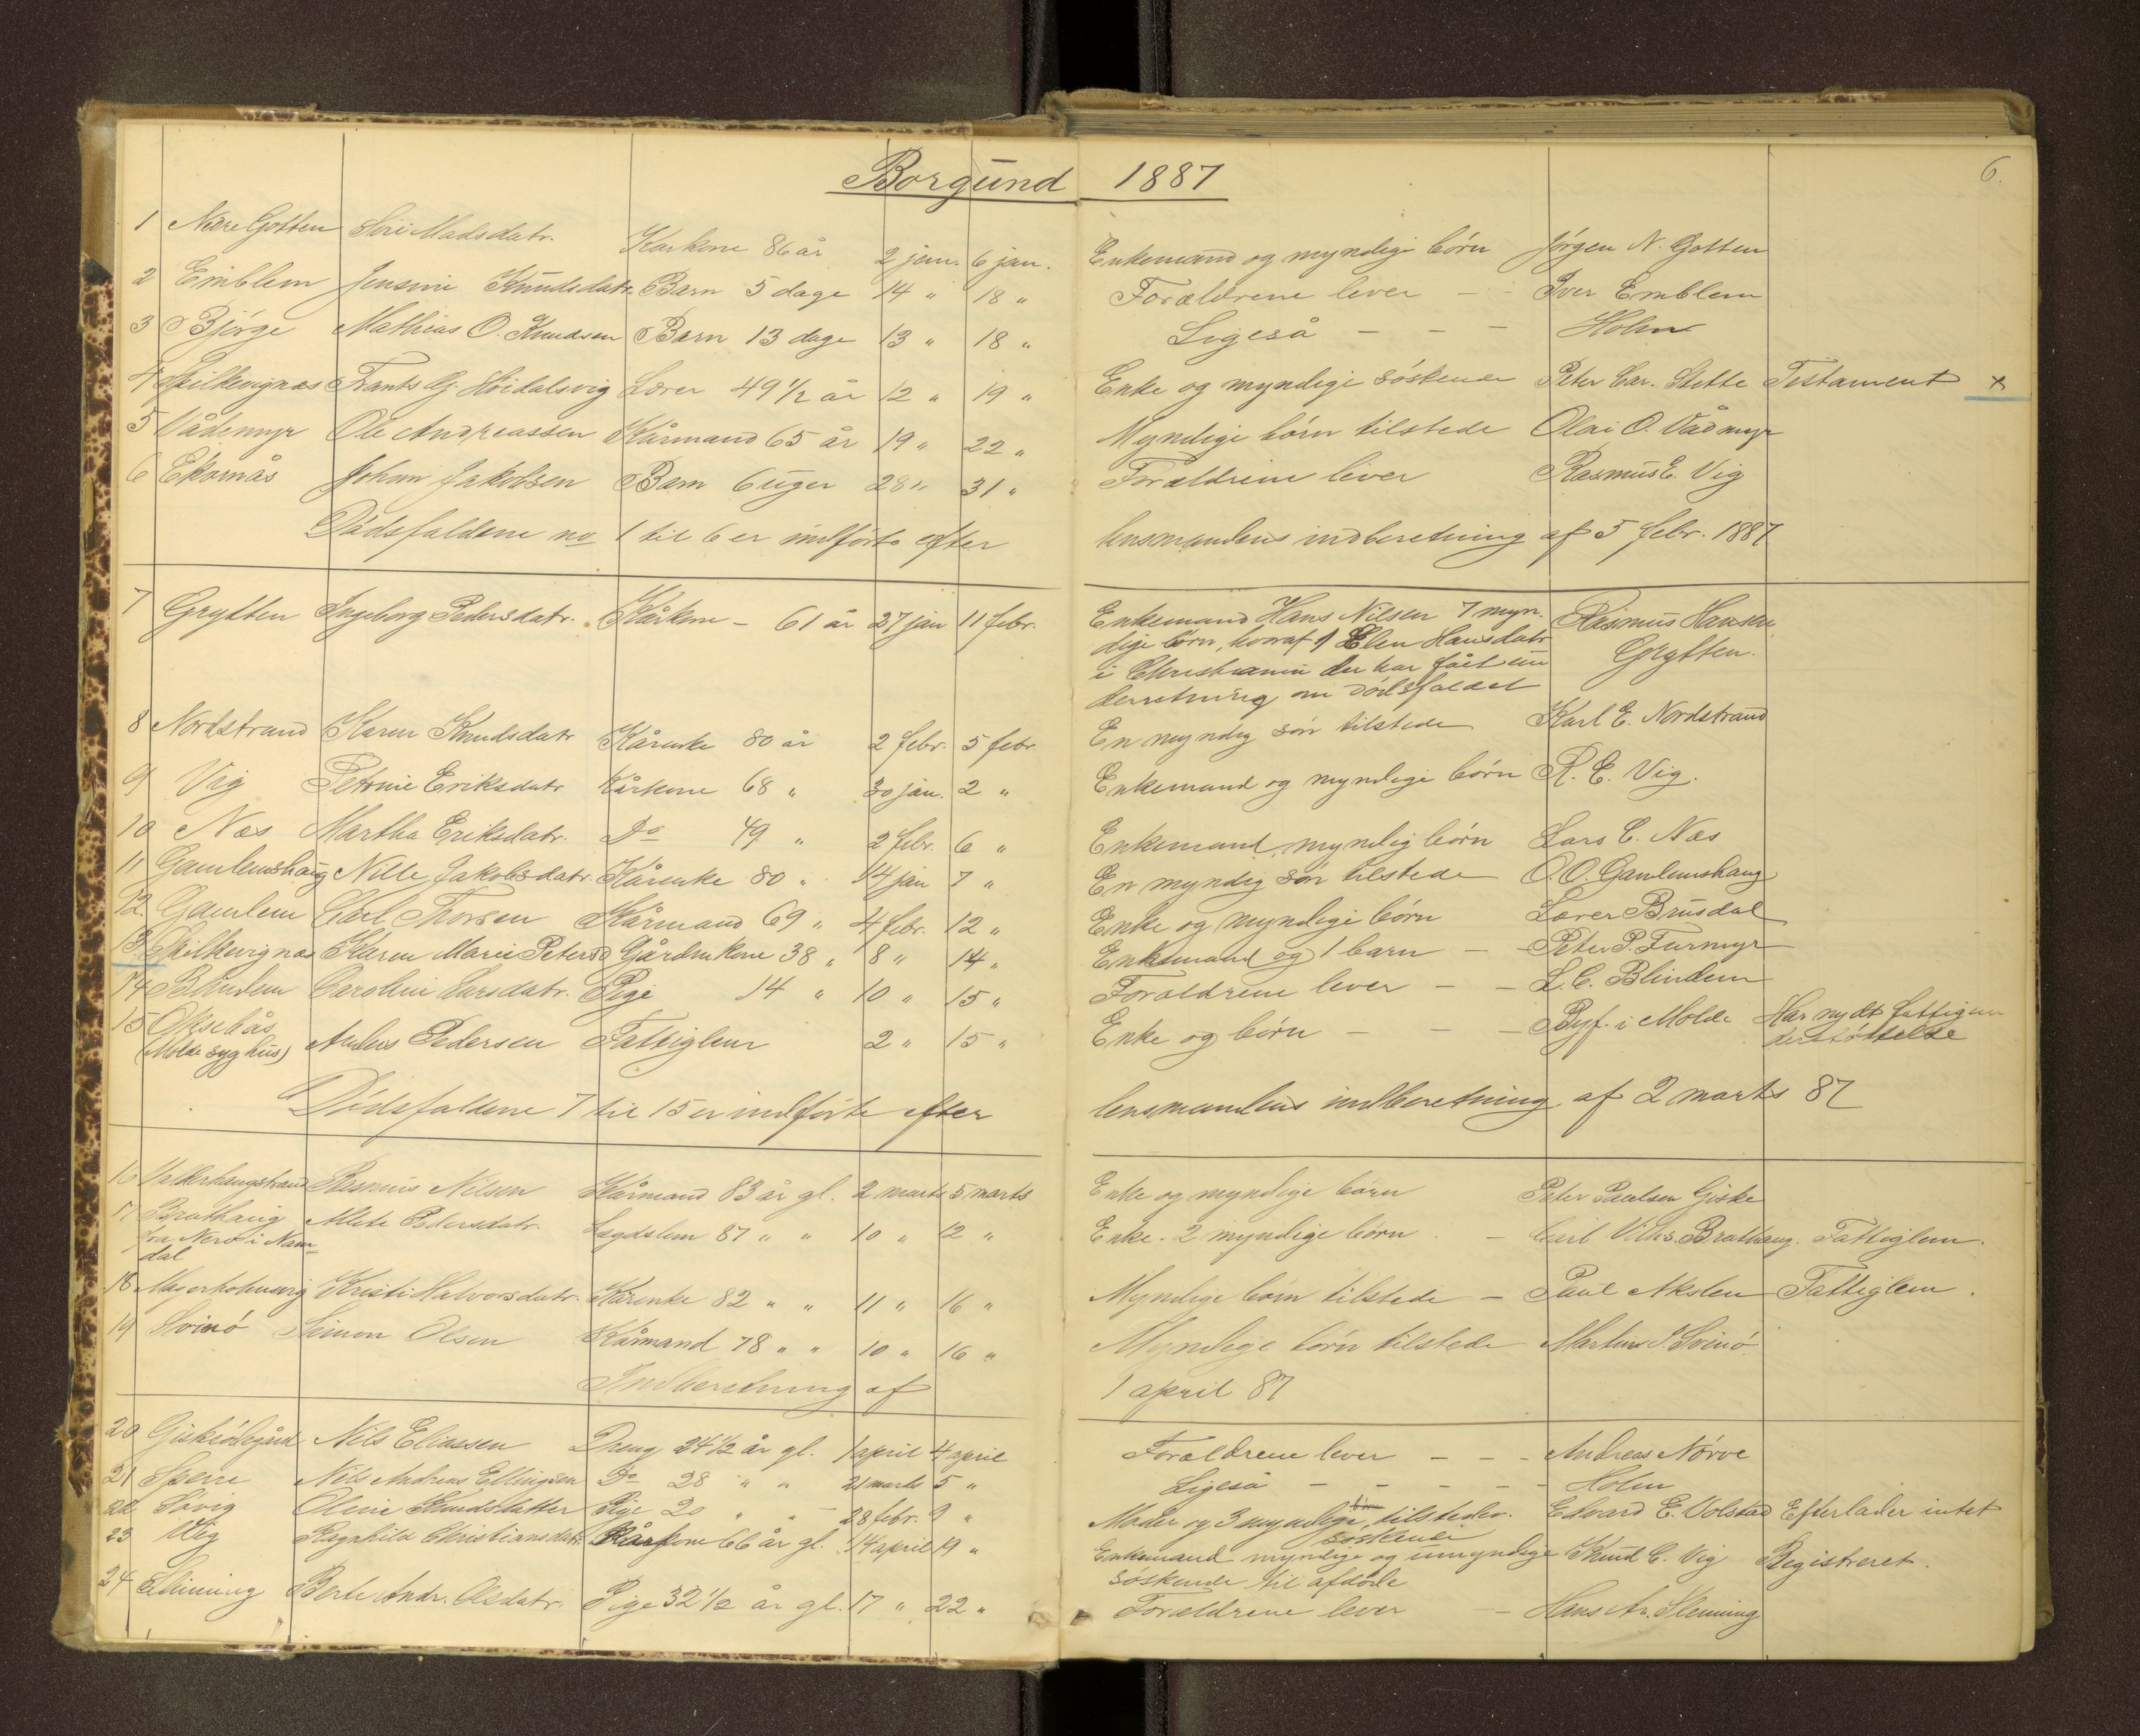 Borgund 1887
6.
1 Nedre Gotten Siri Madsdatr. Karkone 86 år 2 jan. 6 jan. Enkemand og myndige börn Jörgen N. Gotten
2 Emblem Jensine Knudsdatr. Barn 5 dage 14 " 18 " Forældrene lever - - Iver Emblem
3 Bjørge Mathias O. Knudsen Barn 13 dage 13 " 18 " Ligeså - - - Holm
4 Spilkevignæs Frants Hjdalsvig Lærer 49 1/2 år 12 " 19 " Enke og myndige söskende Peter Car. Stette Testament x
5 Vådemyr Ole Andreassen Kårmand 65 år 19 " 22 " Myndige börn tilstede Olai O. Vådmyr
6 Ekornås Johan Jakobsen Barn 6 uger 28 " 31 " Forældrene lever Rasmus E. Vig
Dödsfaldene no 1 til 6 er indförte efter lensmandens indberetning af 5 febr. 1887
7 Grytten Ingeborg Pedersdatr. Kårkone - 61 år 27 jan 11 febr. Enkemand Hans Nilsen 7 myn- Rasmus Hansen
dige börn, hvoraf 1 Elen Hansdatr. Grytten.
i Christiania der har fået un
derretning om dödsfaldet
8 Nordstrand Karen Knudsdatr Kårenke 80 år 2 febr. 5 febr. En myndig sön tilstede Karl E. Nordstrand
9 Vig Petrine Eriksdatr Kårkone 68 " 30 jan. 2 " Enkemand og myndige börn R. E. Vig.
10 Næs Martha Eriksdatr. Do 49 " 2 febr. 6 " Enkemand, myndig börn Lars C. Næs
11 Gamlemshaug Nille Jakobsdatr. Kårenke 80 " 14 jan 7 " En myndig sön tilstede O. O. Gamlemshaug
12. Gamlem Carl Thorsen Kårmand 69 " 4 febr. 12 " Enke og myndige börn Lærer Brusdal
13. Spilkevignæs Karen Marie Petersd Gårdmkone 38 " 8 " 14 " Enkemand og 1 barn - - Peter P. Furmyr
14 Blindem Caroline Larsdatr. Pige 14 " 10 " 15 " Forældrene lever - - L. C. Blindem
15 Oksebås Anders Pedersen Fattiglem 2 " 15 " Enke og börn - - - Byf. i Molde Har nydt fattigun
(Molde syghus) derstöttelse
Dödsfaldene 7 til 15 er indförte efter lensmandens indberetning af 2 marts 87
16 Valderhaugstrand Rasmus Nilsen Kårmand 83 år gl. 2 marts 5 marts Enke og myndige börn Peter Paulsen Giske
17 Brathaug Alete Pedersdatr. Lægdslem 87 " " 10 " 12 " Enke - 2 myndige börn - Carl Vilhs. Brathaug. Fattiglem.
fra Nerö i Nam-
dal
18 Magerholmsvig Kristi Halvorsdatr. Kårenke 82 " " 11 " 16 " Myndige börn tilstede - Paul Akslen Fattiglem.
19 Svinö Simon Olsen Kårmand 78 " " 10 " 16 " Myndige börn tilstede Martinus S. Svinö
Indberetning af 1 april 87
20 Giskeödegård Nils Eliassen Dreng 24 1/2 år gl. 1 april 4 april Forældrene lever - - - Andreas Nörve
21 Sperre Nils Andreas Ellingsen Do 28 " " 21 marts 5 " Ligeså - - - - Holm
22 Søvig Oline Knudsdatter Pige 20 " " 28 febr. 9 " Moder og 3 myndige börn tilstede. Edvard E. Volstad Efterlader intet
söskende
23 Vig Ragnhild Christiansdatr. Kårkone 66 år gl. 14 april 19 " Enkemand myndige og umyndige Knud E. Vig Registreret.
söskende til afdöde
24 Slinning Berte Andr. Olsdatr. Pige 32 1/2 år gl. 17 " 22 " Forældrene lever - Hans Ar. Slinning